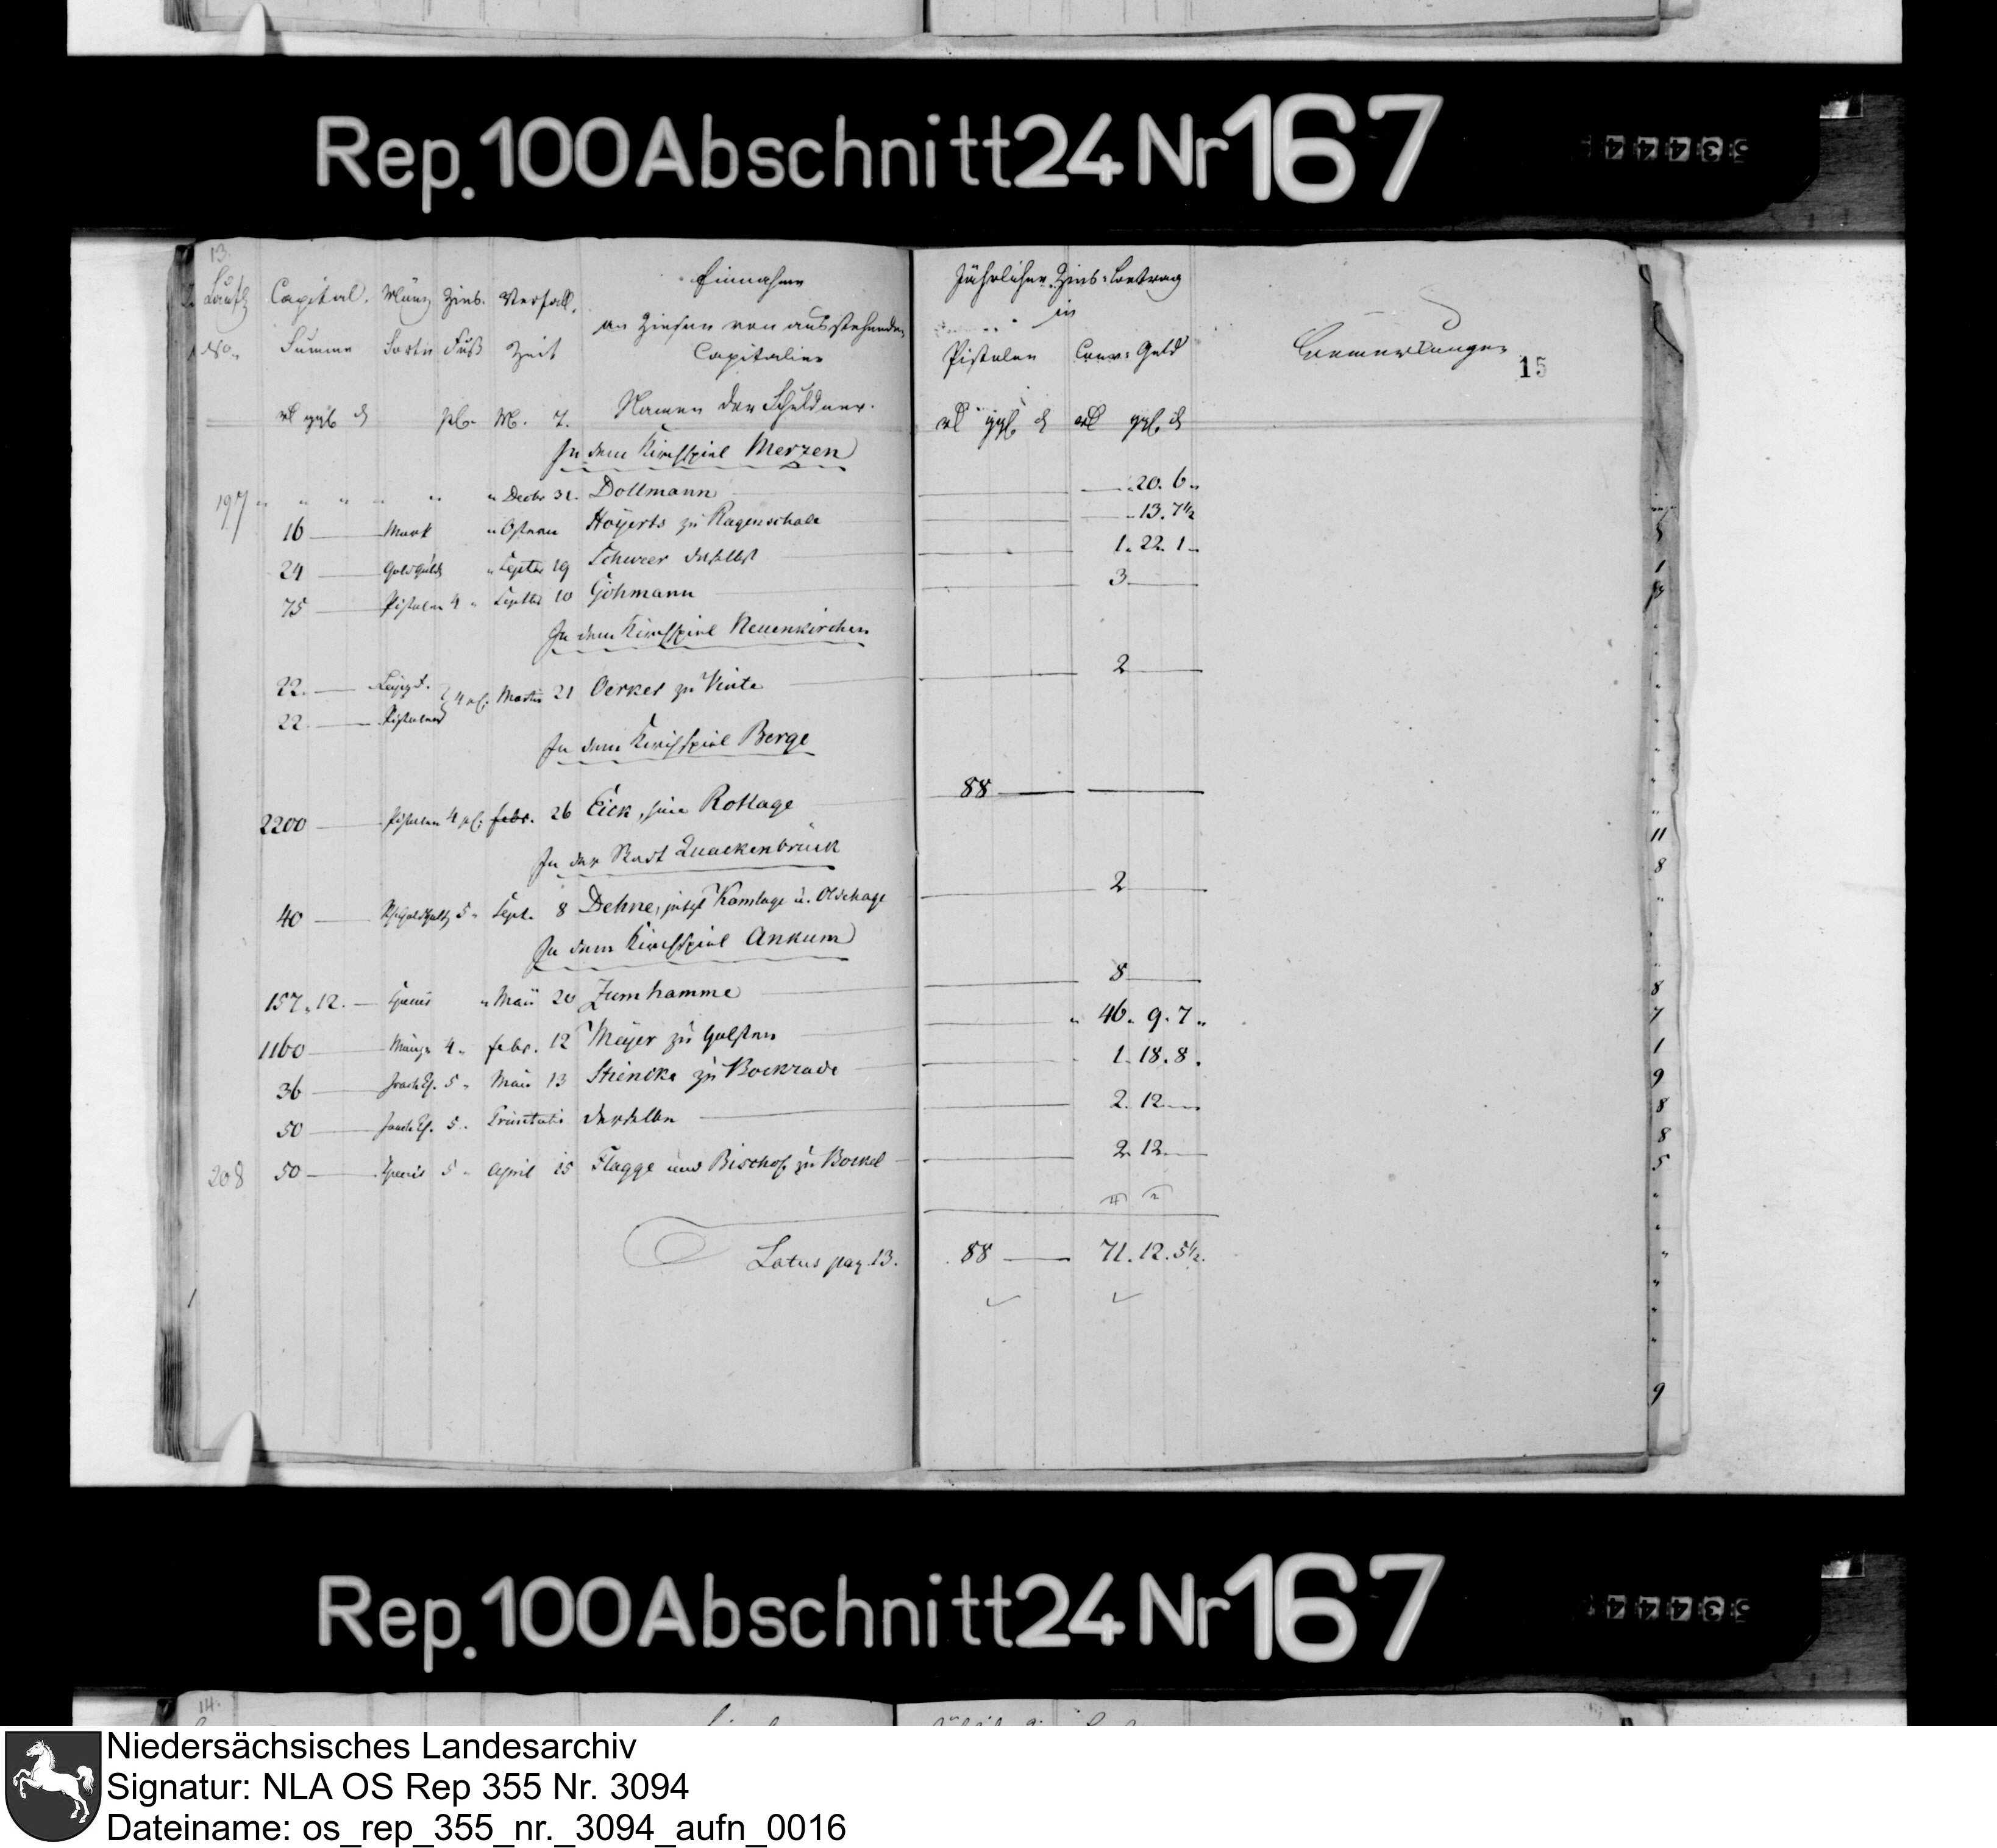 Rep. 100 Abschnitt 24 Nr 167
13.
Laufd. Capital. Münz Zins. Verfall. Einnahme
No. Summe Sorte Fuß Zeit an Zinsen von ausstehenden Capitalien
rl ggl d M. T. Namen der Schuldner.
Jährlicher Zins-Betrag
in
Pistolen Conv: Geld
rl ggl d rl ggl d
Bemerkungen
15
In dem Kirchspiel Merzen
197 " " " " " " Decbr 31. Dollmann — 20. 6 "
16 — Mark " Ostern Hoyerts zu — 13. 7½
24 — Goldguld " Septbr 19 Schweer daselbst 1. 22. 1 —
75 — Pistolen 4 " Septbr 10 Göhmann 3 —
In dem Kirchspiel Neuenkirchen
22. — 4 pC. Martii 21 Oerker zu Vinte 2 —
22 — Pistolen
In dem Kirchspiel Berge
2200 — Pistolen 4 pC. febr. 26 Eick, sive Rottage 88 — —
In der Stadt Quackenbrück
40 — 5 " Sept. 8 Dehne, jetzt Kamlage u. Oldehage 2 —
In dem Kirchspiel Ankum
157. 12. — Species " Maii 20 Zumhamme 8 —
1160 — Münze 4 " febr. 12 Meyer zu Holsten " 46. 9. 7 "
36 — 5 " Maii 13 Stiencke zu Bockrade 1. 18. 8.
50 — 5 " Trinitatis derselbe 2. 12 —
208 50 — Species 5 " April 15 Flagge und Bischof zu Bockel 2. 12 —
Latus pag. 13. 88 — 71. 12. 5½.
Rep. 100 Abschnitt 24 Nr 167
14.
Niedersächsisches Landesarchiv
Signatur: NLA OS Rep 355 Nr. 3094
Dateiname: os_rep_355_nr._3094_aufn_0016